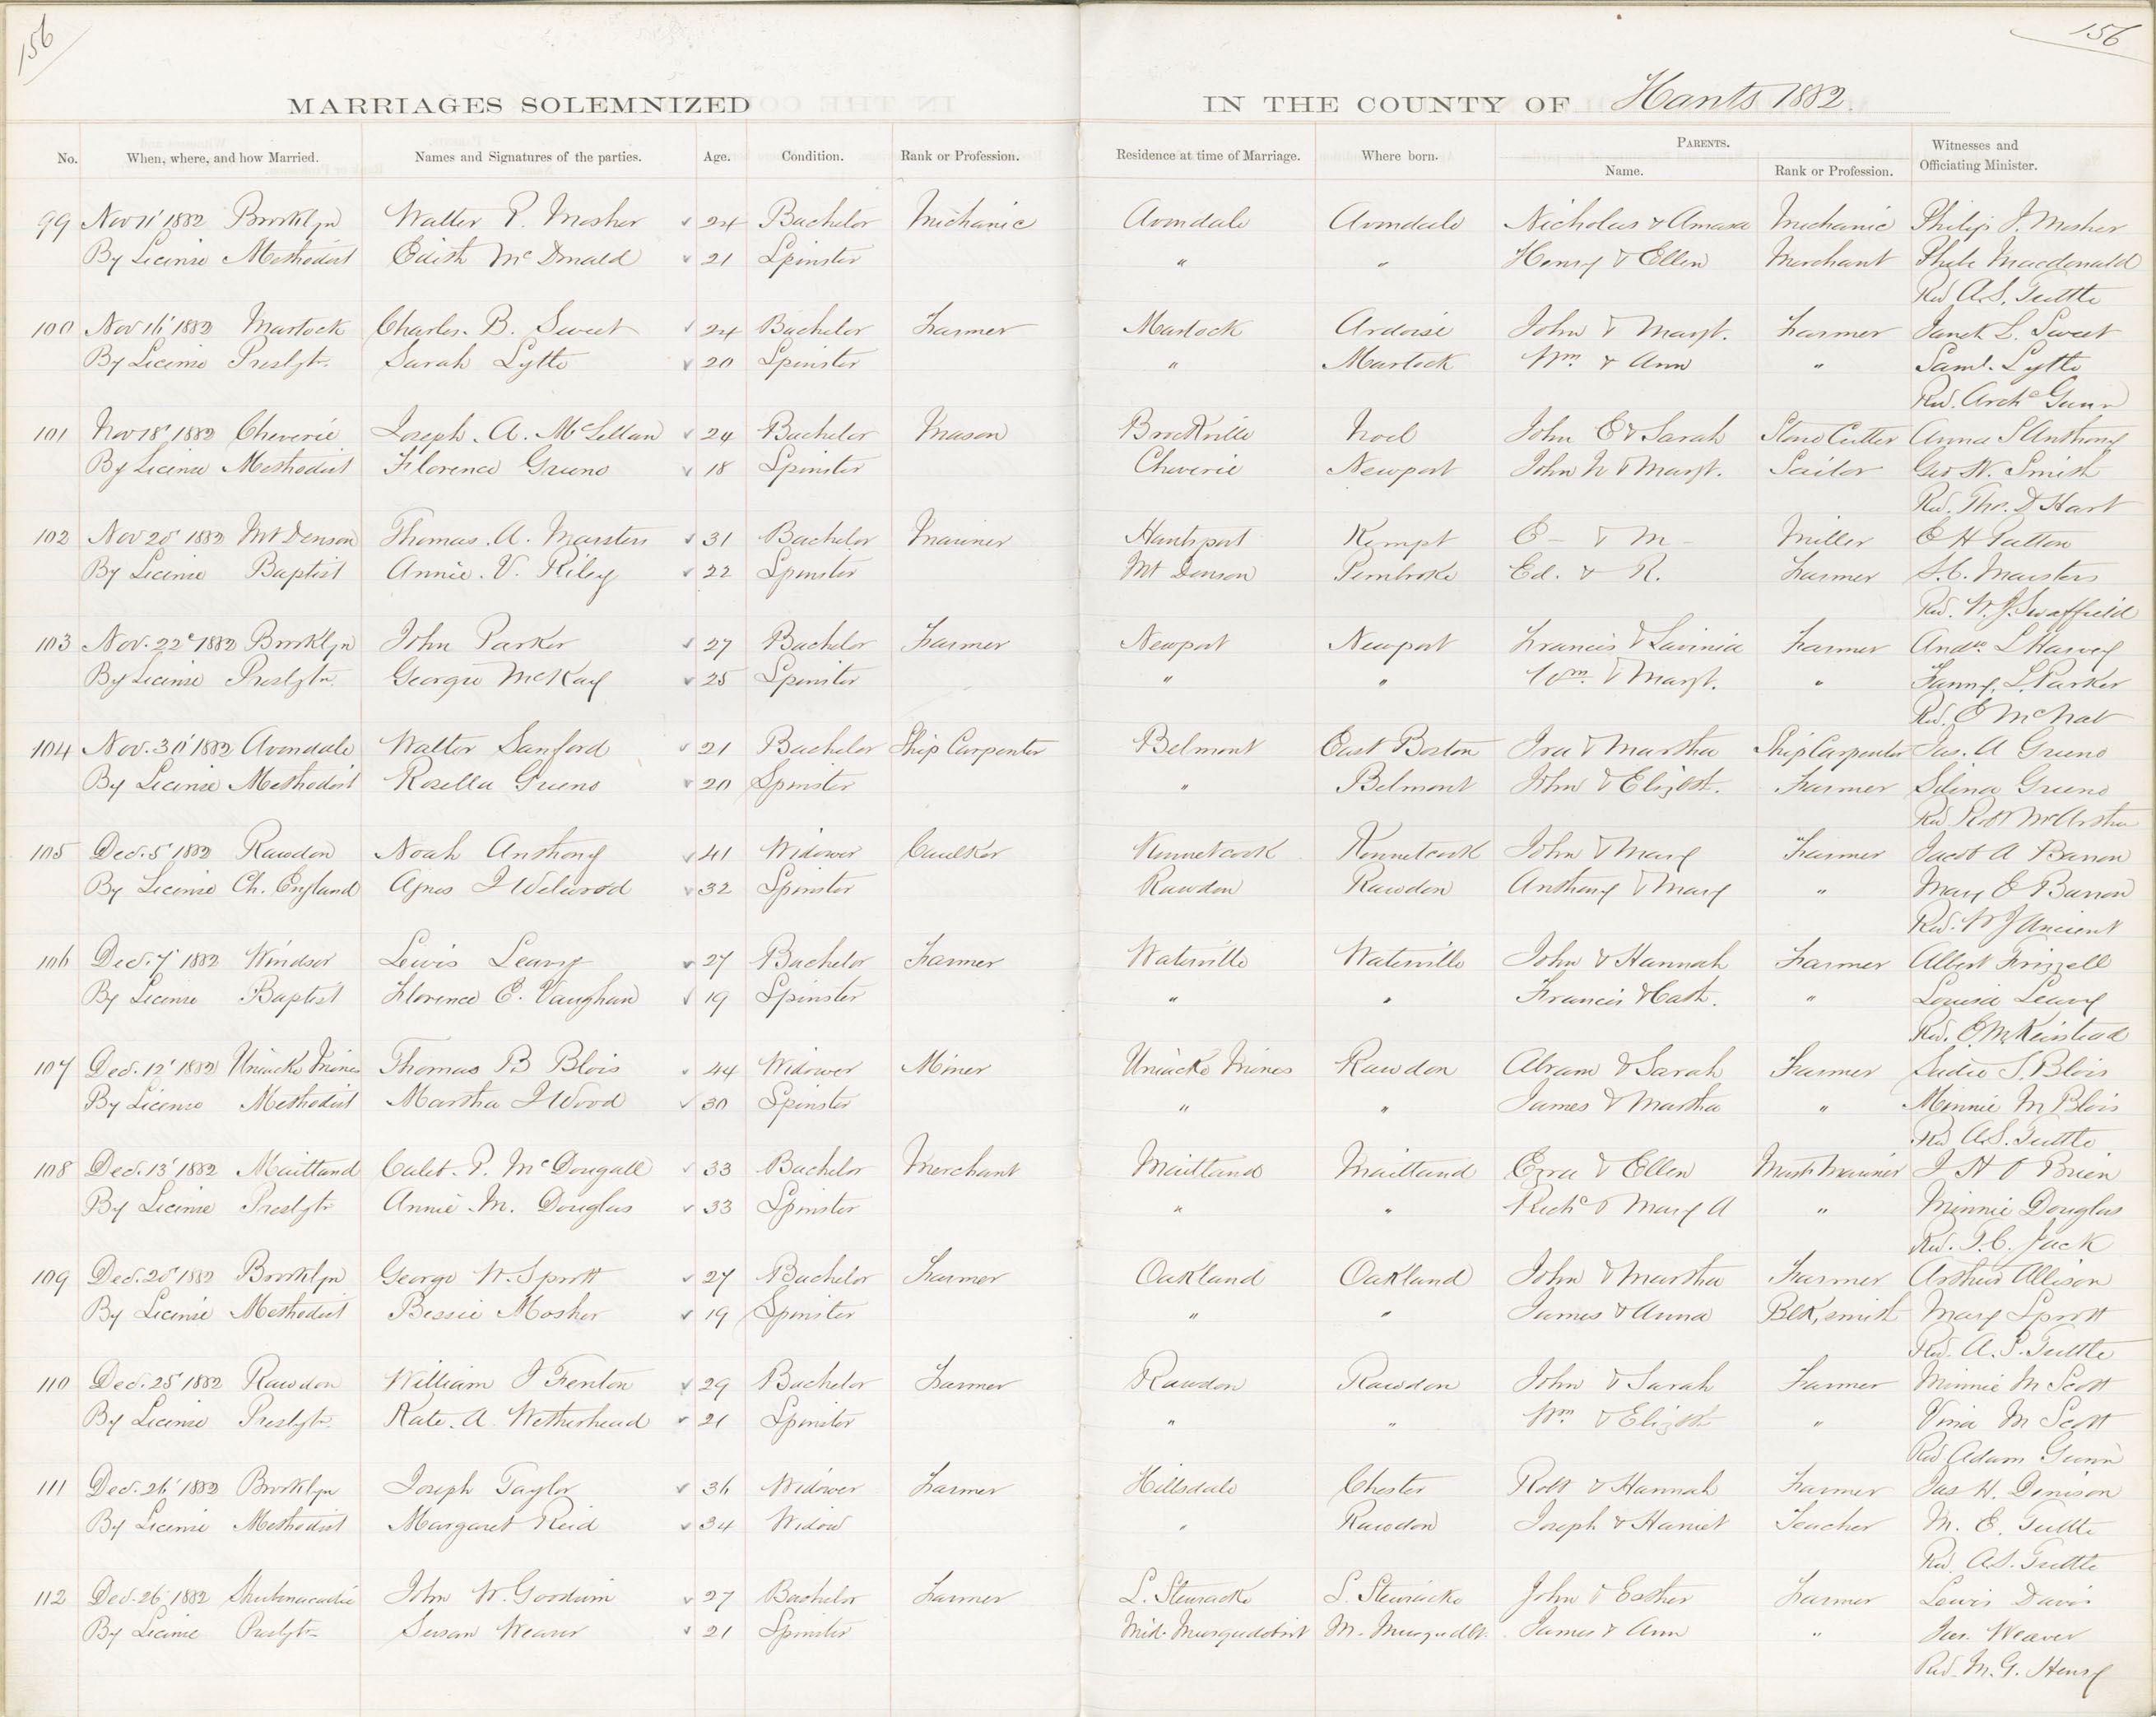 156
156
MARRIAGES SOLEMNIZED IN THE COUNTY OF Hants 1882.
No. When, where, and how Married. Names and Signatures of the parties. Age. Condition. Rank or Profession. Residence at time of Marriage. Where born. PARENTS. Name. Rank or Profession. Witnesses and Officiating Minister.
99 Nov 11' 1882 Brooklyn Walter P. Mosher 24 Bachelor Mechanic Avondale Avondale Nicholas & Amasa Mechanic Philip J. Mosher
By License Methodist Edith McDonald 21 Spinster " " Henry & Ellen Merchant Phebe Macdonald
Rev A.S. Tuttle
100 Nov 16' 1882 Martock Charles. B. Sweet 24 Bachelor Farmer Martock Ardoise John & Margt. Farmer Janet L. Sweet
By License Presbytn. Sarah Lytle 20 Spinster " Martock Wm. & Ann " Saml. Lytle
Rev. Archd Gunn
101 Nov 18' 1882 Cheverie Joseph. A. McLellan 24 Bachelor Mason Brookville Noel John E & Sarah Stone Cutter Anna S Anthony
By License Methodist Florence Greeno 18 Spinster Cheverie Newport John N & Margt. Sailor Geo W. Smith
Rev. Tho. D Hart
102 Nov 20' 1882 Mt Denson Thomas. A. Marsters 31 Bachelor Mariner Hantsport Kempt E - & M - Miller E H Patton
By License Baptist Annie. V. Riley 22 Spinster Mt Denson Pembroke Ed. & R. Farmer S.C. Marsters
Rev. W. J. Swaffield
103 Nov. 22d 1882 Brooklyn John Parker 27 Bachelor Farmer Newport Newport Francis & Lavinia Farmer Andw. L Harvey
By License Presbytn. Georgie McKay 25 Spinster " " Wm. & Margt. " Fanny. L. Parker
Rev. E McNab
104 Nov. 30' 1882 Avondale Walter Sanford 21 Bachelor Ship Carpenter Belmont East Boston Ira & Martha Ship Carpenter Jas. A Greeno
By License Methodist Rosella Greeno 20 Spinster " Belmont John & Elizbt. Farmer Selina Greeno
Rev Robt McArthur
105 Dec. 5' 1882 Rawdon Noah Anthony 41 Widower Caulker Kennetcook Kennetcook John & Mary Farmer Jacob A Barron
By License Ch. England Agnes J Welwood 32 Spinster Rawdon Rawdon Anthony & Mary " Mary E Barron
Rev. W J Ancient
106 Dec. 7' 1882 Windsor Lewis Leavy 27 Bachelor Farmer Waterville Waterville John & Hannah Farmer Albert Frizzell
By License Baptist Florence E. Vaughan 19 Spinster " " Francis & Cath. " Louisa Leavy
Rev. E M Keirstead
107 Dec. 12' 1882 Uniacke Mines Thomas B Blois 44 Widower Miner Uniacke Mines Rawdon Abram & Sarah Farmer Sadie S. Blois
By License Methodist Martha J Wood 30 Spinster " " James & Martha " Minnie M Blois
Rev A.S. Tuttle
108 Dec. 13' 1882 Maitland Caleb. P. McDougall 33 Bachelor Merchant Maitland Maitland Ezra & Ellen Mast. Mariner J H O Brien
By License Presbytn Annie. M. Douglas 33 Spinster " " Richd & Mary A " Minnie Douglas
Rev. T.C. Jack
109 Dec. 20' 1882 Brooklyn George W. Sprott 27 Bachelor Farmer Oakland Oakland John & Martha Farmer Arthur Allison
By License Methodist Bessie Mosher 19 Spinster " " James & Anna Blk, smith Mary Sprott
Rev. A.S. Tuttle
110 Dec. 25' 1882 Rawdon William J Fenton 29 Bachelor Farmer Rawdon Rawdon John & Sarah Farmer Minnie M Scott
By License Presbytn. Kate. A. Wetherhead 21 Spinster " " Wm. & Elizbth " Vinia M Scott
Rev Adam Gunn
111 Dec. 26' 1882 Brooklyn Joseph Taylor 36 Widower Farmer Hillsdale Chester Robt & Hannah Farmer Jas H. Denison
By License Methodist Margaret Reid 34 Widow " Rawdon Joseph & Harriet Teacher M. E. Tuttle
Rev. A.S. Tuttle
112 Dec. 26' 1882 Shubenacadie John W. Goodwin 27 Bachelor Farmer L. Stewiacke L. Stewiacke John & Esther Farmer Lewis Davis
By License Presbytn Susan Weaver 21 Spinster Mid. Musquodoboit M. Musquodbt. James & Ann " Jas. Weaver
Rev. M.G. Henry